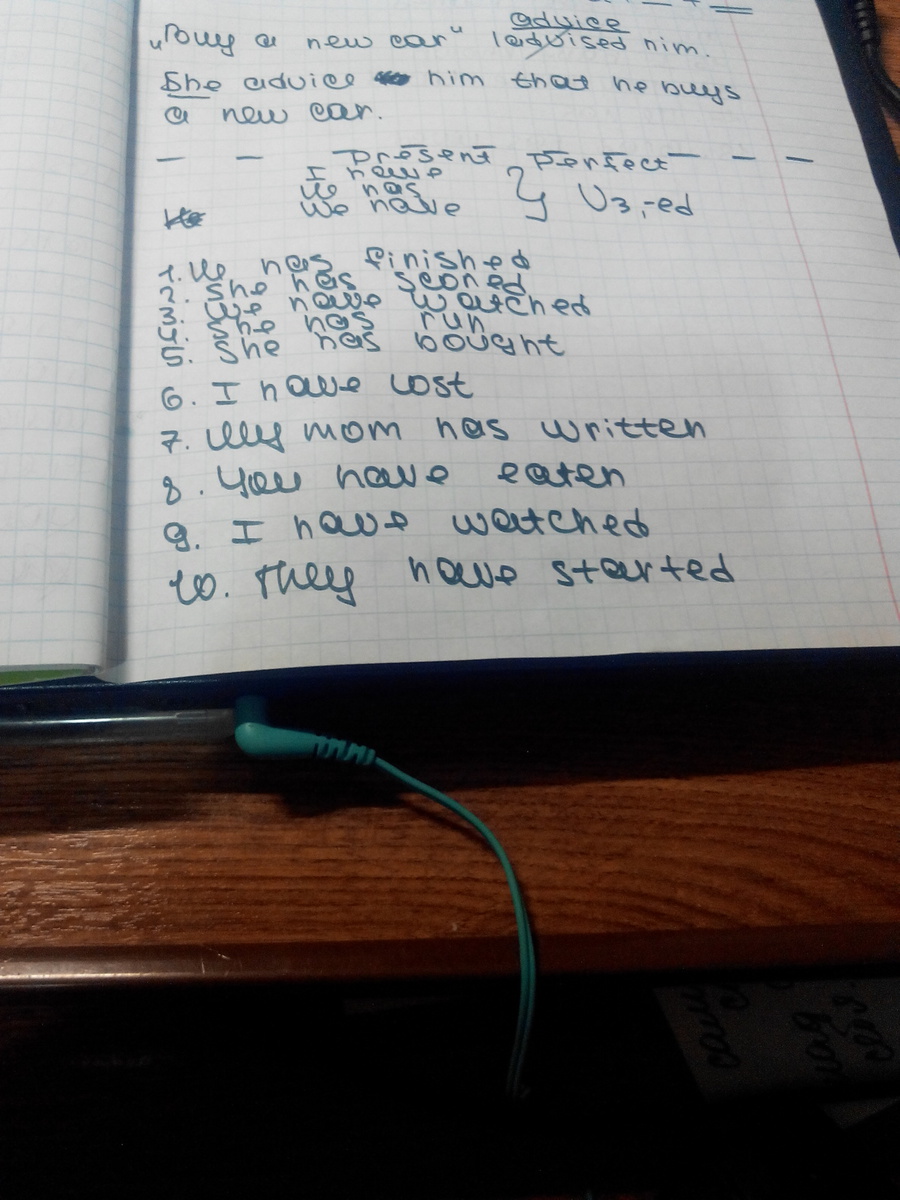 advice
„Buy a new car“ I advised him.
She advice him that he buys
a new car.
— — Present Perfect — — —
I have
He has
We have } V3,-ed
1. He has finished
2. She has scored
3. We have watched
4. She has run
5. She has bought
6. I have lost
7. My mom has written
8. You have eaten
9. I have watched
10. They have started